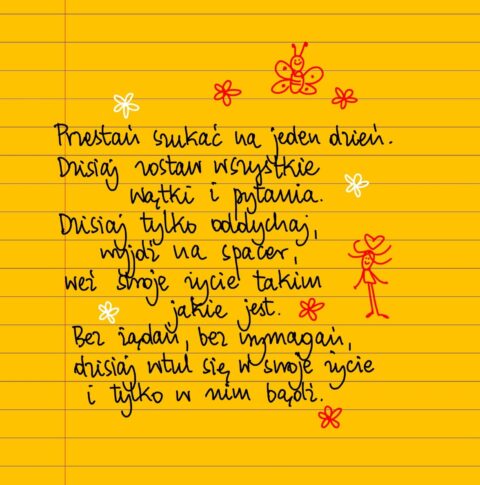 Przestań szukać na jeden dzień.
Dzisiaj zostaw wszystkie
wątki i pytania.
Dzisiaj tylko oddychaj,
wyjdź na spacer,
weź swoje życie takim
jakie jest.
Bez żądań, bez wymagań,
dzisiaj wtul się w swoje życie
i tylko w nim bądź.